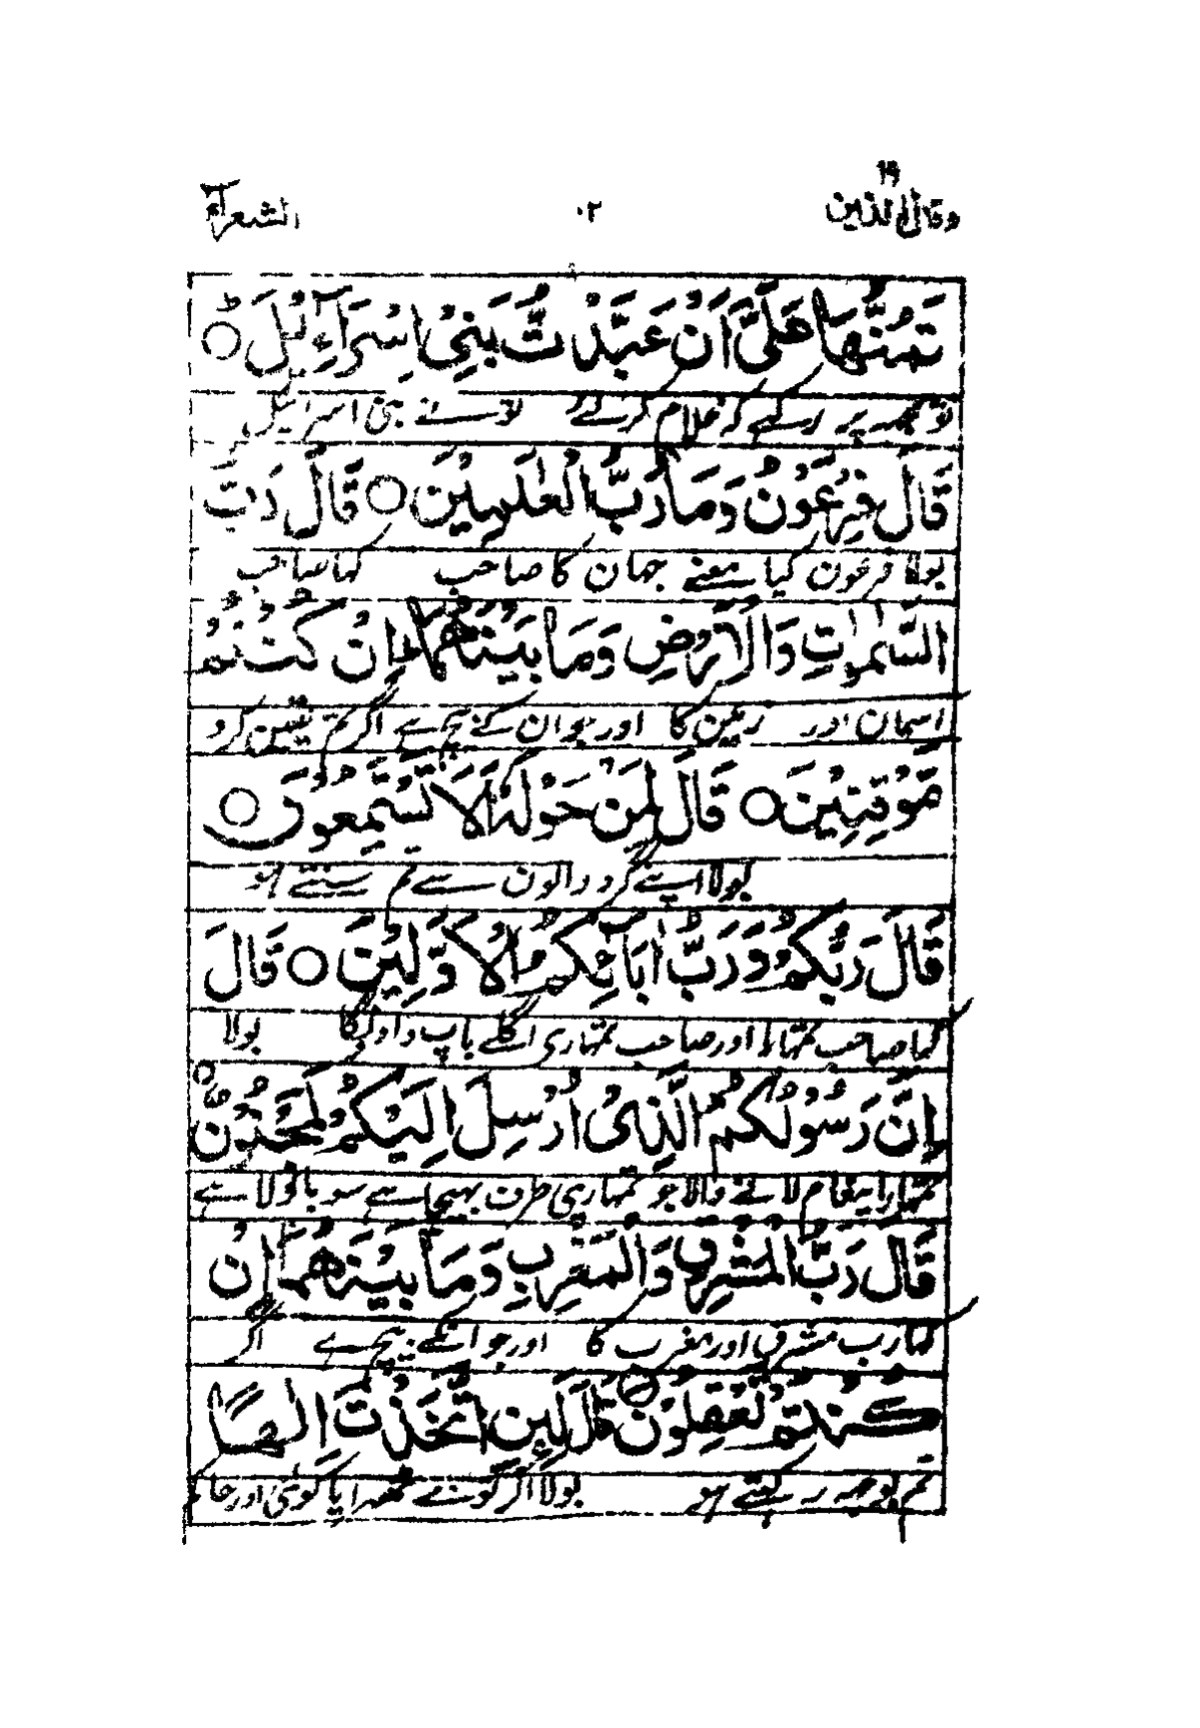 وقال الذين ١٩ ٠٢ الشعرآء
تَمُنُّهَا عَلَىَّ اَنْ عَبَّدْتَّ بَنِىْ اِسْرَآءِيْلَ ○
تو مجھہ پر رکہے کہ غلام کر لئے تو نے بنی اسرائیل
قَالَ فِرْعَوْنُ وَمَا رَبُّ الْعٰلَمِيْنَ ○ قَالَ رَبُّ
بولا فرعون کیا معنے جہان کا صاحب کہا صاحب
السَّمٰوٰتِ وَالْاَرْضِ وَمَا بَيْنَهُمَا اِنْ كُنْتُمْ
اسمان اور زمین کا اور جو ان کے بیچ ہے اگر تم یقین کرو
مُّوْقِنِيْنَ ○ قَالَ لِمَنْ حَوْلَهٗ اَلَا تَسْتَمِعُوْنَ ○
بولا اپنے گرد والون سے تم سنتے ہو
قَالَ رَبُّكُمْ وَرَبُّ اٰبَآئِكُمُ الْاَوَّلِيْنَ ○ قَالَ
کہا صاحب تمہارا اور صاحب تمہاری اگلے باپ دادونکا بولا
اِنَّ رَسُوْلَكُمُ الَّذِىْ اُرْسِلَ اِلَيْكُمْ لَمَجْنُوْنٌ ○
تمہارا پیغام لانے والا جو تمہاری طرف بہیجا ہے سو باولا ہے
قَالَ رَبُّ الْمَشْرِقِ وَالْمَغْرِبِ وَمَا بَيْنَهُمَا اِنْ
کہا رب مشرق اور مغرب کا اور جو انکے بیچ ہے اگر
كُنْتُمْ تَعْقِلُوْنَ ○ قَالَ لَئِنِ اتَّخَذْتَ اِلٰهًا
تم بوجہہ رکہتے ہو بولا اگر تونے ٹھہرایا کوئی اور حاکم